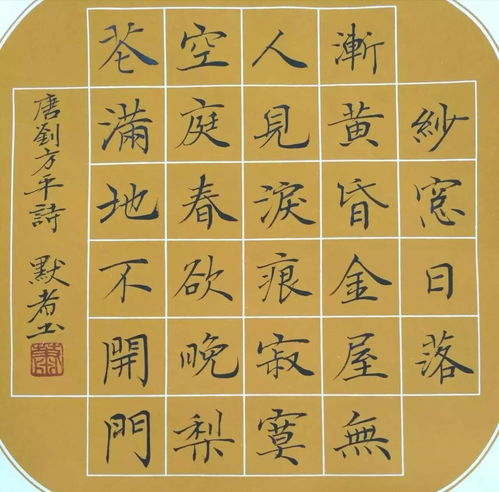 紗窓日落
漸黃昏金屋無
人見淚痕寂寞
空庭春欲晚梨
花滿地不開門
唐劉方平詩 默者书